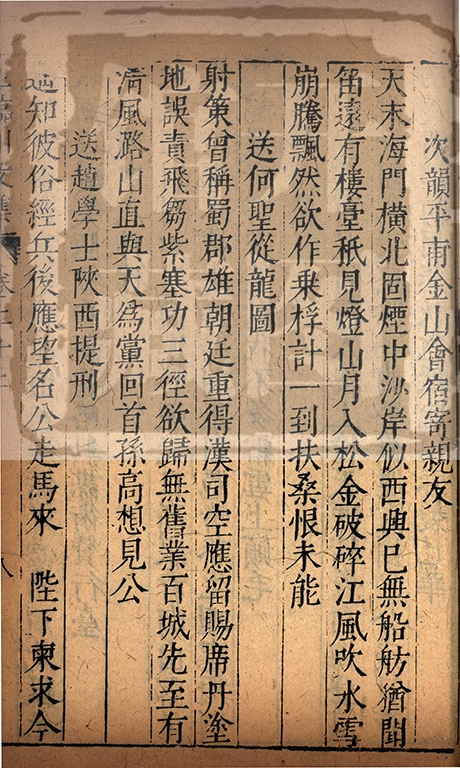 次韻平甫金山會宿寄親友
天末海門橫北固煙中沙岸似西興已無船舫猶聞
笛遠有樓臺秖見燈山月入松金破碎江風吹水雪
崩騰飄然欲作乗桴計一到扶桑恨未能
送何聖從龍圖
射策曾稱蜀郡雄朝廷重得漢司空應留賜席丹塗
地誤責飛芻紫塞功三徑欲歸無舊業百城先至有
清風路山直與天為黨回首孫高想見公
送趙學士陝西提刑
遙知彼俗經兵後應望名公走馬來 陛下柬求今